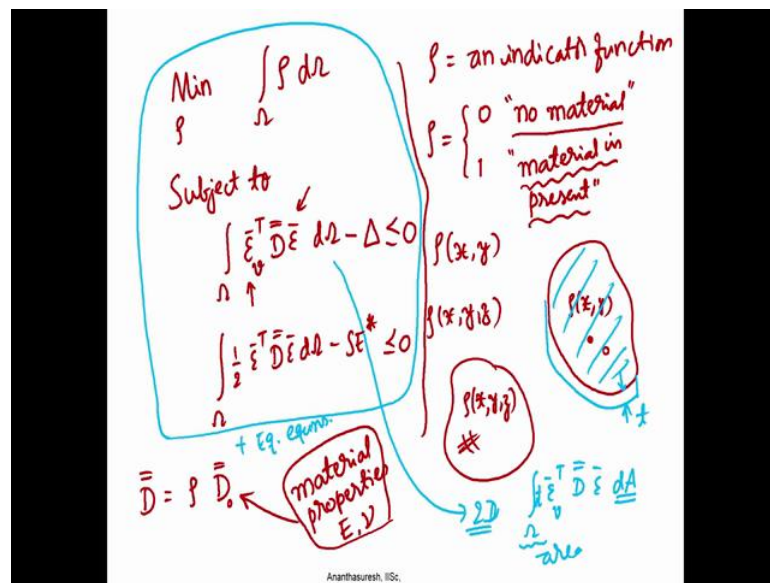 Min ∫ ρ dΩ
ρ Ω
Subject to
∫ ε̄ᵥᵀ D̿ ε̄ dΩ − Δ ≤ 0
Ω
∫ ½ ε̄ᵀ D̿ ε̄ dΩ − SE* ≤ 0
Ω
+ Eq. equns.
D̿ = ρ D̿₀
material
properties
E, ν
ρ = an indicatr function
ρ = { 0 "no material"
1 "material in
present"
ρ(x,y)
ρ(x,y,z)
ρ(x,y)
t
ρ(x,y,z)
#
2D ∫ t ε̄ᵥᵀ D̿ ε̄ dA
Ω
area
Ananthasuresh, IISc,